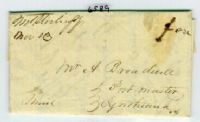 6589
Mt Sterling
Nov 13
free
Mr A Broadwell
Post master
Cynthiana